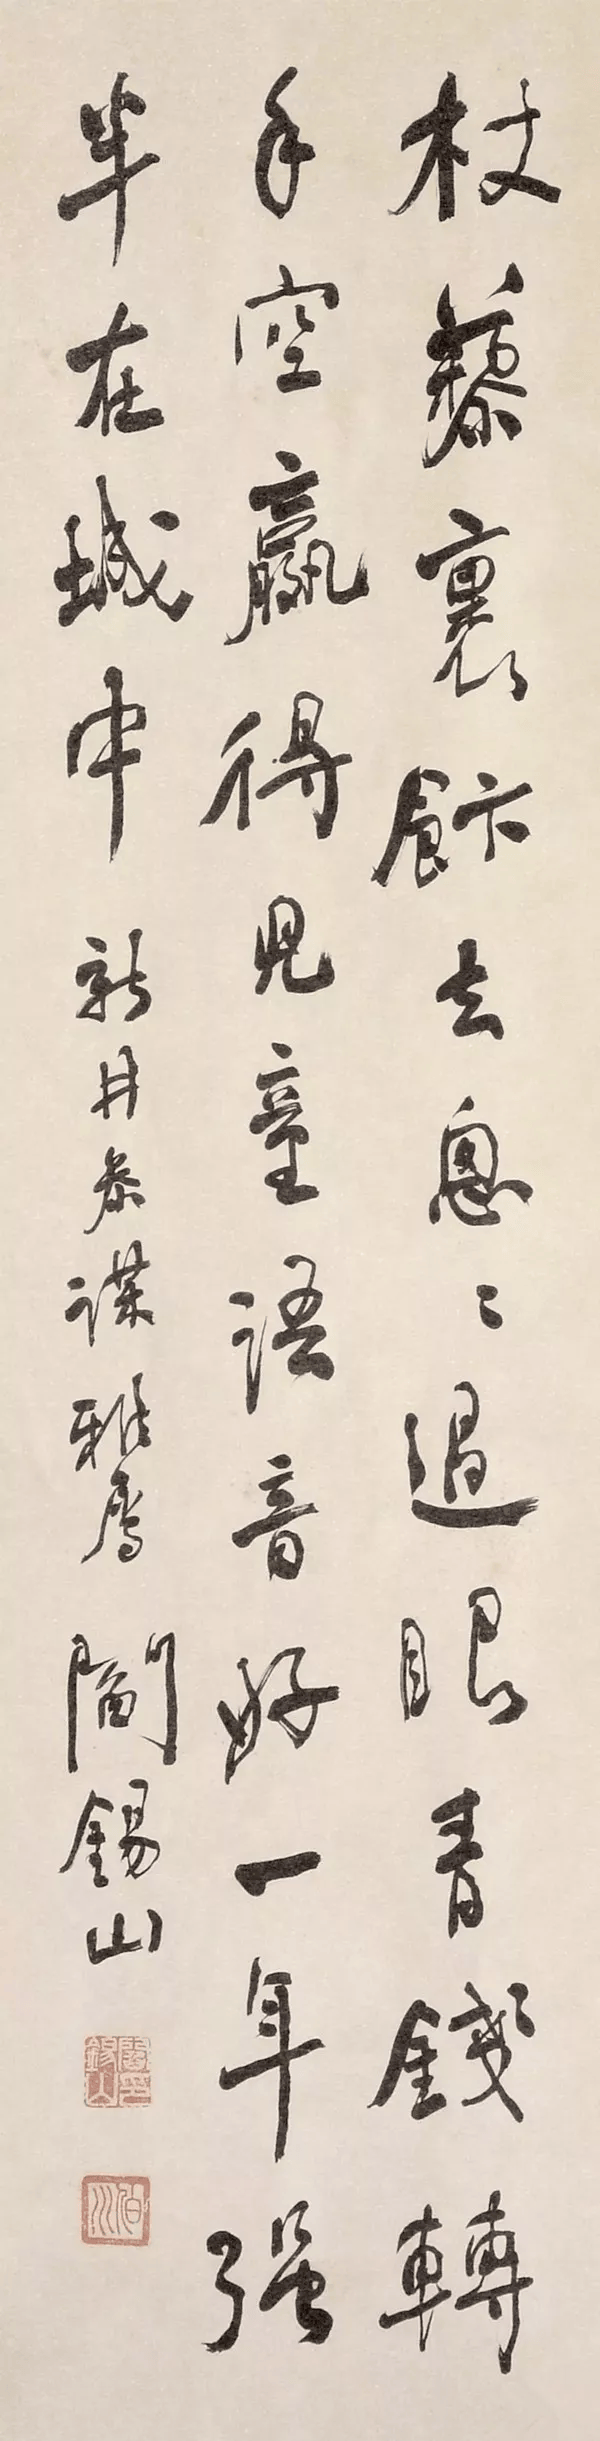 杖藜裹飰去悤〻過眼青錢轉
手空贏得兒童語音好一年强
半在城中 新井恭謀雅鷹 閻錫山
閻錫山印
伯川